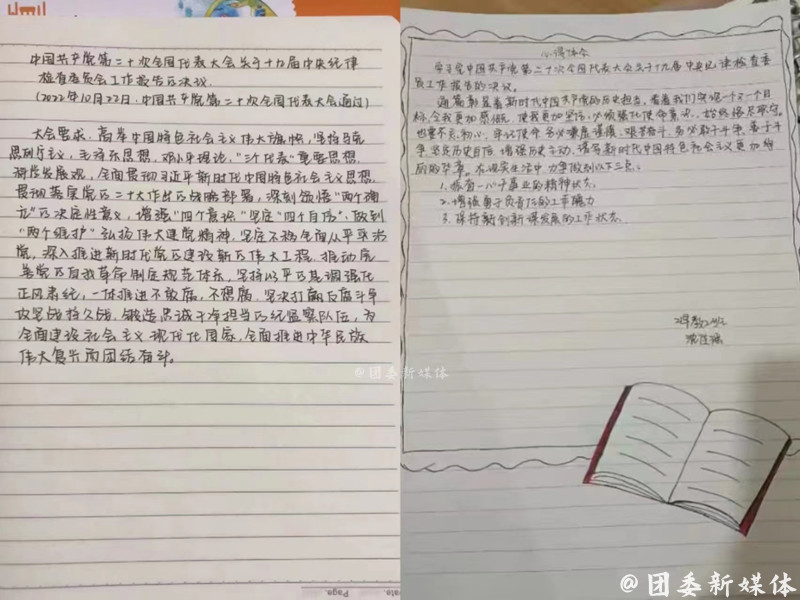 中国共产党第二十次全国代表大会关于十九届中央纪律
检查委员会工作报告的决议
(2022年10月22日,中国共产党第二十次全国代表大会通过)
大会要求,高举中国特色社会主义伟大旗帜,坚持马克
思列宁主义,毛泽东思想,邓小平理论,"三个代表"重要思想,
科学发展观,全面贯彻习近平新时代中国特色社会主义思想,
贯彻落实党的二十大作出的战略部署,深刻领悟"两个确
立"的决定性意义,增强"四个意识"坚定"四个自信",做到
"两个维护"弘扬伟大建党精神,坚定不移全面从严治
党,深入推进新时代党的建设新的伟大工程,推动完
善党的自我革命制度规范体系,坚持以严的基调强化
正风肃纪,一体推进不敢腐,不想腐,坚决打赢反腐斗争
攻坚战持久战,锻造忠诚干净担当的纪监察队伍,为
全面建设社会主义现代化国家,全面推进中华民族
伟大复兴而团结奋斗。
@团委新媒体
Page.
心得体会
学习完中国共产党第二十次全国代表大会关于十九届中央纪律检查委
员会工作报告的决议。
通篇彰显着新时代中国共产党的历史担当,看着我们实现一个又一个目
标,令我更加感慨,使我更加坚信,必须强化使命意识,始终恪尽职守
也要不忘初心,牢记使命,务必谦虚谨慎,艰苦奋斗,务必敢于斗争,善于斗
争,坚定历史自信,增强历史主动,谱写新时代中国特色社会主义更加绚
丽的华章。在现实生活中,力争做到以下三点:
1.振奋一心干事业的精神状态
2.增强勇于负责任的工作魄力
3.保持勤创新谋发展的工作状态。
@团委新媒体